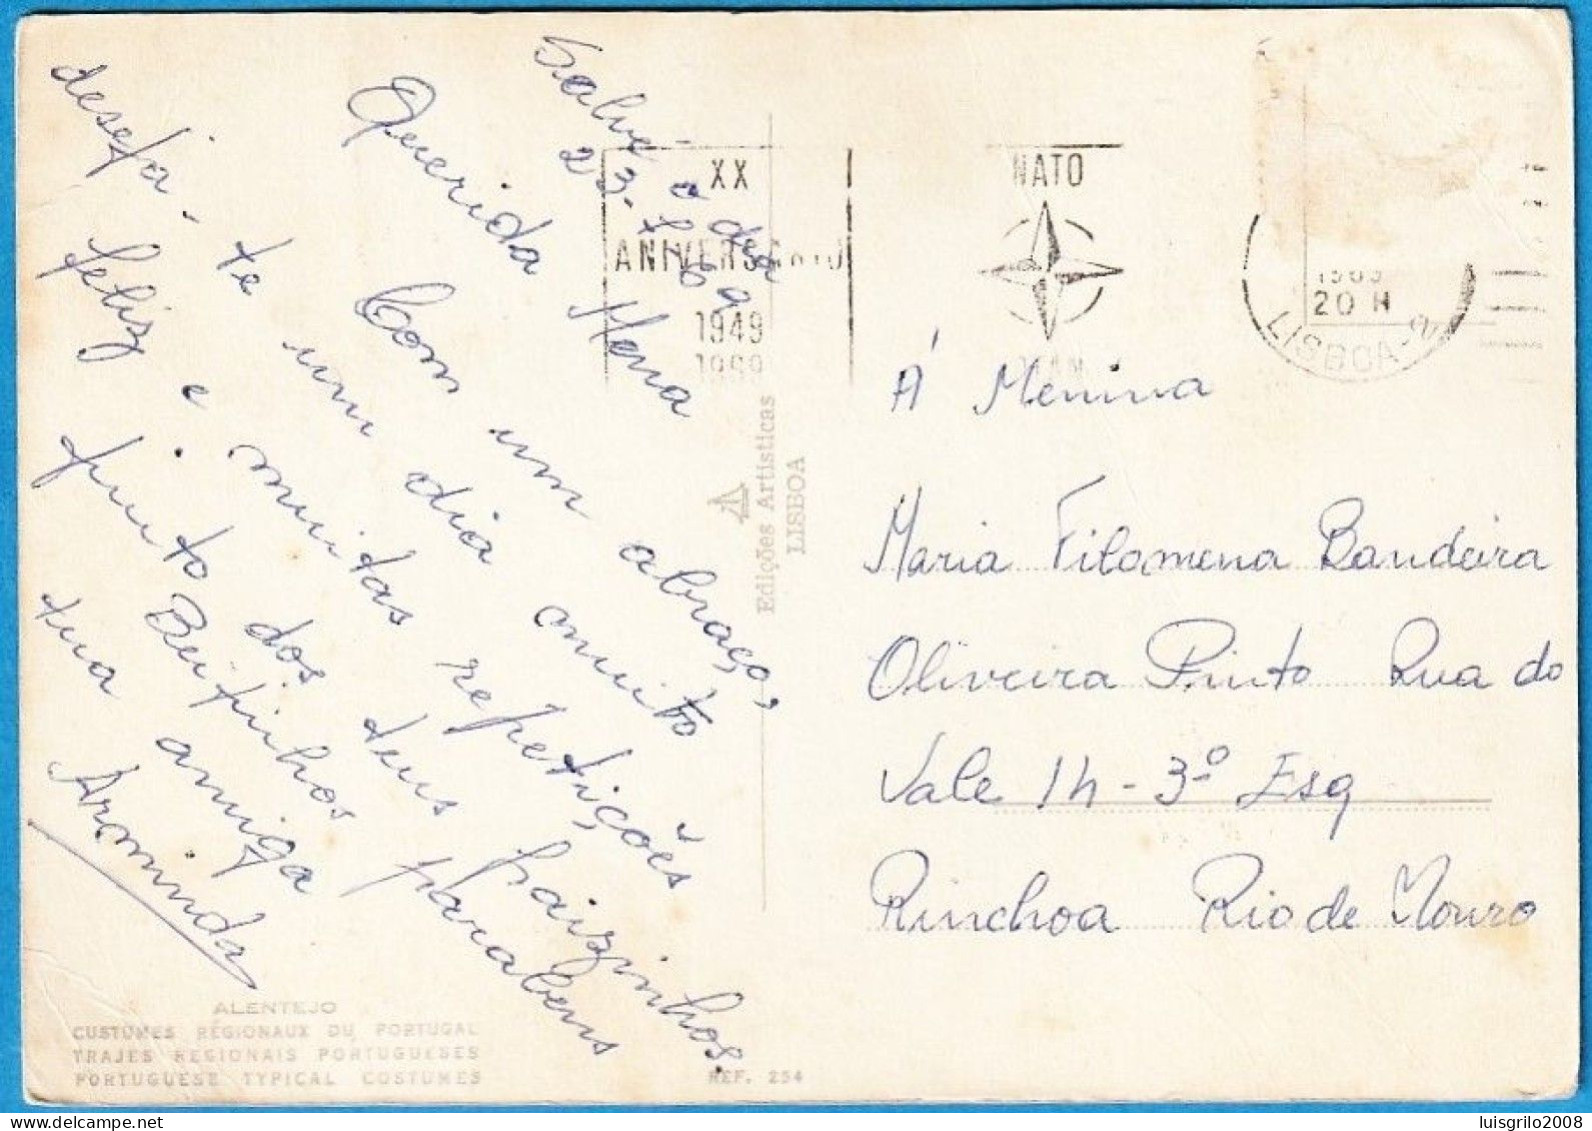 Salvé o dia
23-7-69
Querida Mena
Com um abraço,
deseja-te um dia muito
feliz e muitas repetições
junto dos teus paizinhos.
Beijinhos parabens
tua amiga
Arminda
XX
ANIVERSARIO
1949
1969
NATO
OTAN
20 H
LISBOA-2
Edições Artísticas
LISBOA
Á Menina
Maria Filomena Bandeira
Oliveira Pinto Rua do
Vale 14-3º Esq
Rinchoa Rio de Mouro
ALENTEJO
CUSTUMES RÉGIONAUX DU PORTUGAL
TRAJES REGIONAIS PORTUGUESES
PORTUGUESE TYPICAL COSTUMES
REF. 254
luisgrilo2008